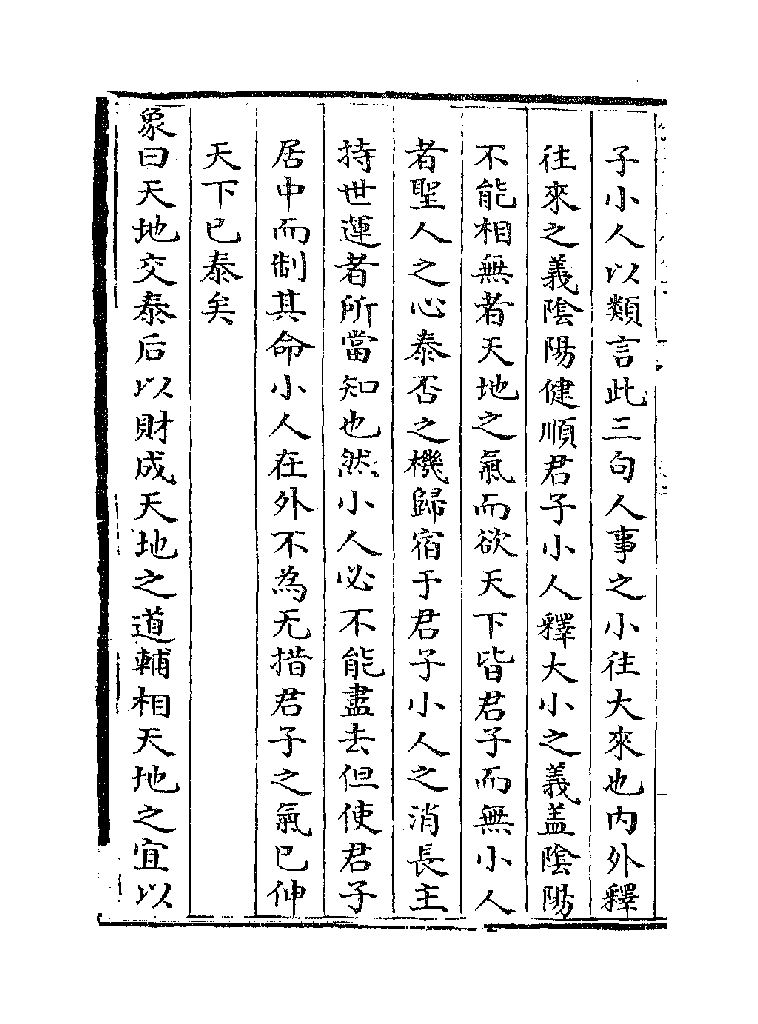 子小人以類言此三句人事之小往大來也内外釋
往來之義陰陽健順君子小人釋大小之義盖陰陽
不能相無者天地之氣而欲天下皆君子而無小人
者聖人之心泰否之機歸宿于君子小人之消長主
持世運者所當知也然小人必不能盡去但使君子
居中而制其命小人在外不為无措君子之氣已伸
天下已泰矣
象曰天地交泰后以財成天地之道輔相天地之宜以